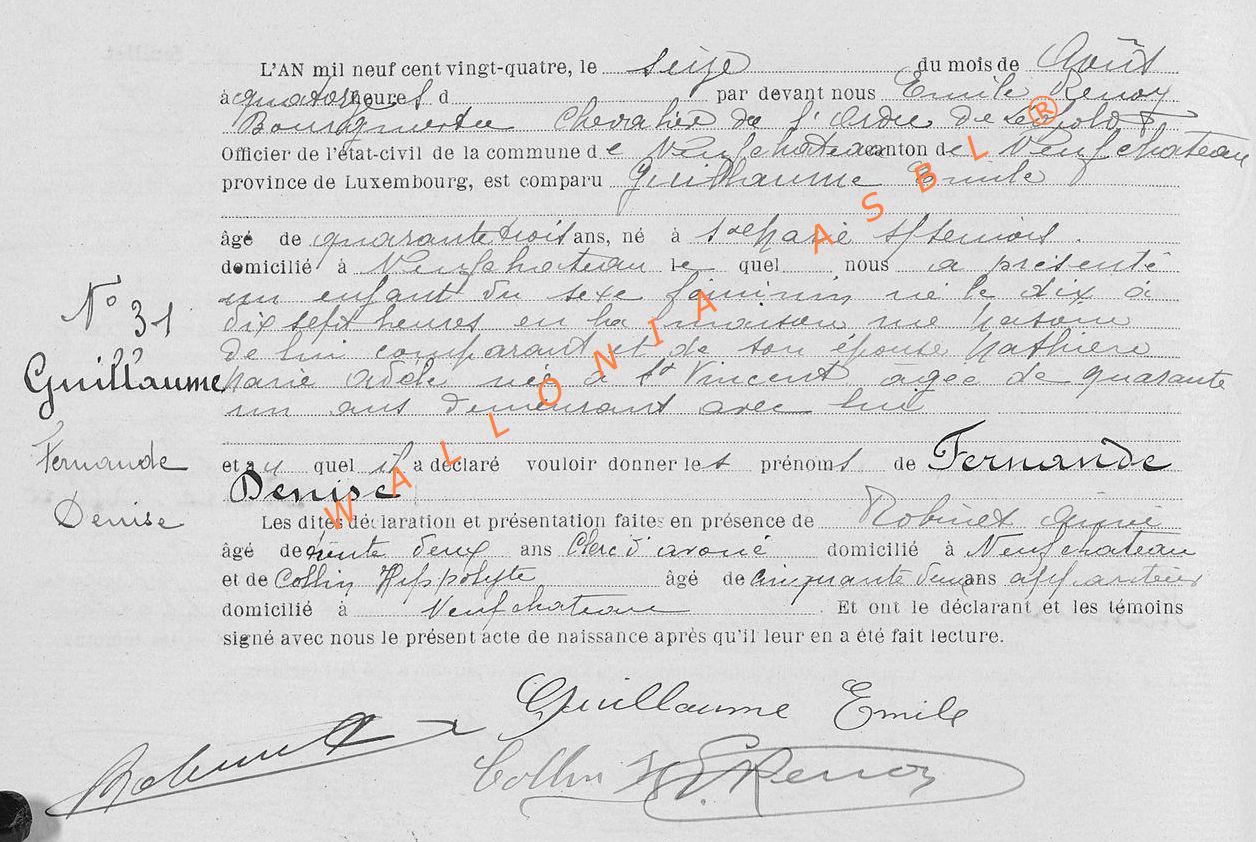 L'AN mil neuf cent vingt-quatre, le seize du mois de Août
à quatorze heures d par devant nous Emile Renoy
Bourgmestre Chevalier de l'ordre de Léopold
Officier de l'état-civil de la commune de Neufchateau canton de Neufchateau
province de Luxembourg, est comparu Guillaume Emile
âgé de quarante trois ans, né à Ste Marie s/Semois.
domicilié à Neufchateau le quel nous a présenté
un enfant du sexe féminin né le dix à
N° 31
dix sept heures en la maison
de lui comparant et de son épouse Mathieu
Guillaume
Marie Adèle née à St Vincent agée de quarante
un ans demeurant avec lui
Fernande
et au quel il a déclaré vouloir donner les prénoms de Fernande
Denise
Denise
Les dites déclaration et présentation faites en présence de Robinet Aimé
âgé de trente deux ans Clerc d'avoué domicilié à Neufchateau
et de Collin Hippolyte âgé de cinquante deux ans
domicilié à Neufchateau. Et ont le déclarant et les témoins
signé avec nous le présent acte de naissance après qu'il leur en a été fait lecture.
Guillaume Emile
Robinet A
Collin H E. Renoy
WALLONIA ASBL®